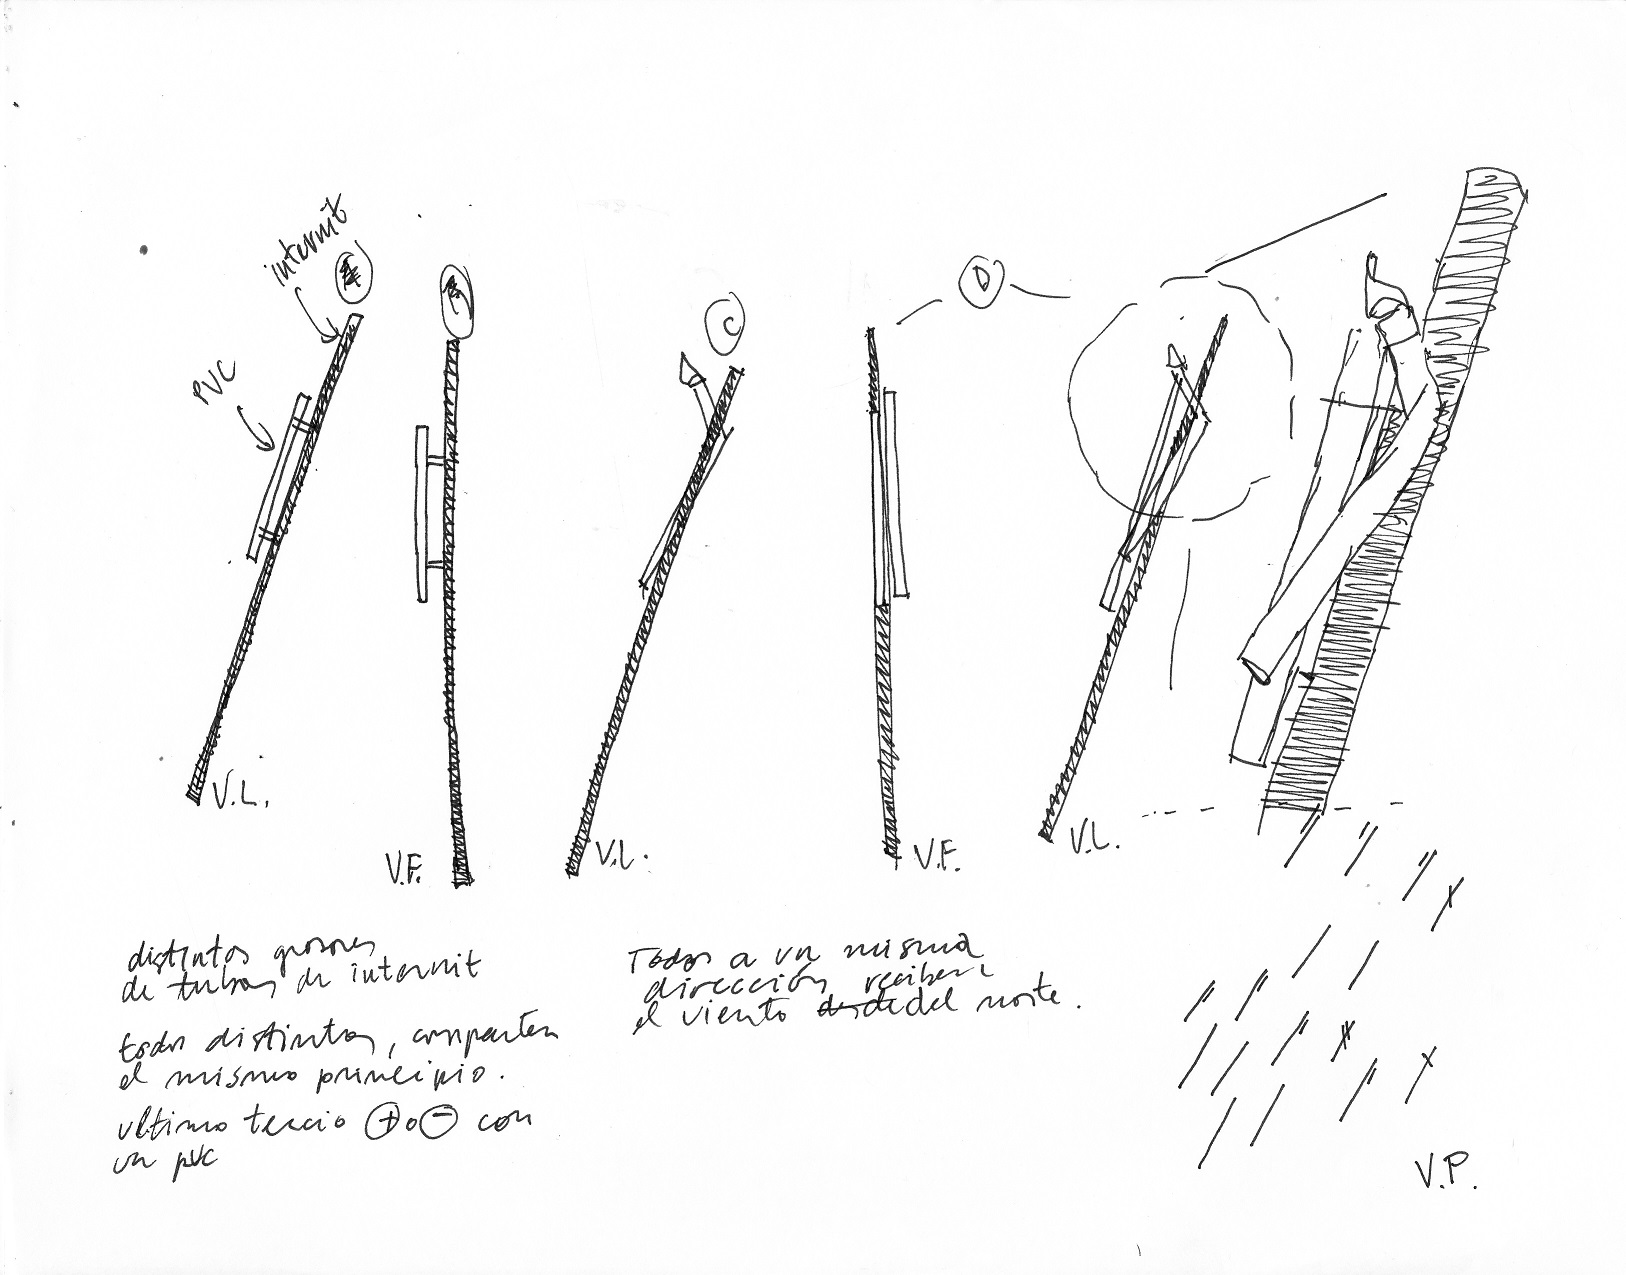 internit
PVC
C
D
V.L.
V.F.
V.L.
V.F.
V.L.
distintos grosores
de tubos de internit
todos distintos, comparten
el mismo principio.
ultimo tercio + o - con
un pvc
Todos a un misma
dirección reciben
el viento desde del norte.
V.P.